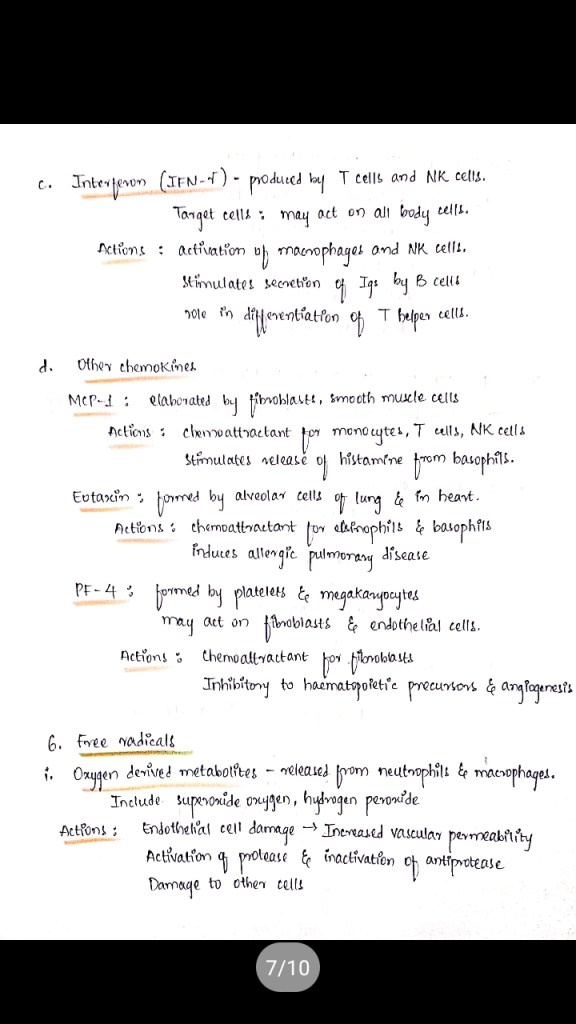 c. Interferon (IFN-γ) - produced by T cells and NK cells.
Target cells : may act on all body cells.
Actions : activation of macrophages and NK cells.
Stimulates secretion of Igs by B cells
role in differentiation of T helper cells.
d. Other chemokines
MCP-1 : elaborated by fibroblasts, smooth muscle cells
Actions : chemoattractant for monocytes, T cells, NK cells
Stimulates release of histamine from basophils.
Eotaxin : formed by alveolar cells of lung & in heart.
Actions : chemoattractant for eosinophils & basophils
induces allergic pulmonary disease
PF-4 : formed by platelets & megakaryocytes
may act on fibroblasts & endothelial cells.
Actions : Chemoattractant for fibroblasts
Inhibitory to haematopoietic precursors & angiogenesis
6. Free radicals
i. Oxygen derived metabolites - released from neutrophils & macrophages.
Include superoxide oxygen, hydrogen peroxide
Actions : Endothelial cell damage → Increased vascular permeability
Activation of protease & inactivation of antiprotease
Damage to other cells
7/10